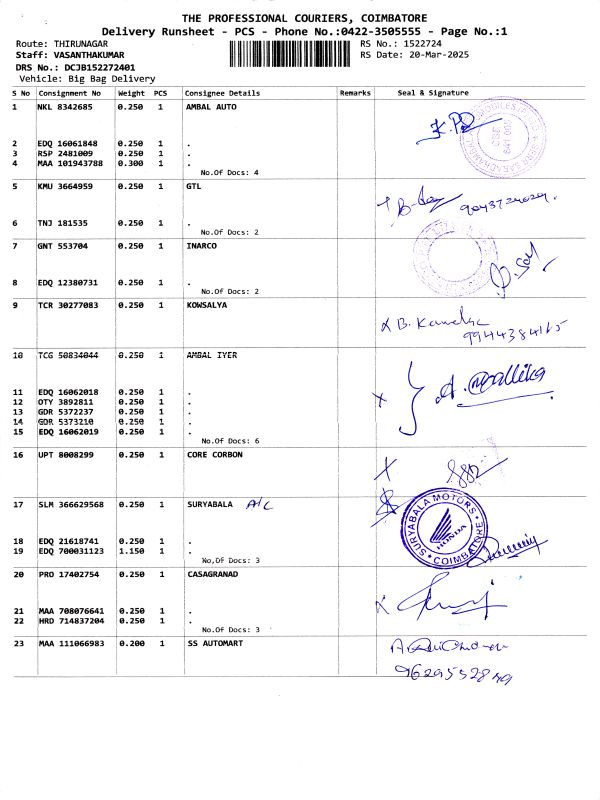 THE PROFESSIONAL COURIERS, COIMBATORE
Delivery Runsheet - PCS - Phone No.:0422-3505555 - Page No.:1
Route: THIRUNAGAR RS No.: 1522724
Staff: VASANTHAKUMAR RS Date: 20-Mar-2025
DRS No.: DCJB152272401
Vehicle: Big Bag Delivery
S No Consignment No Weight PCS Consignee Details Remarks Seal & Signature
1 NKL 8342685 0.250 1 AMBAL AUTO
2 EDQ 16061848 0.250 1 .
3 RSP 2481009 0.250 1 .
4 MAA 101943788 0.300 1 .
No.Of Docs: 4
5 KMU 3664959 0.250 1 GTL
6 TNJ 181535 0.250 1 .
No.Of Docs: 2
7 GNT 553704 0.250 1 INARCO
8 EDQ 12380731 0.250 1 .
No.Of Docs: 2
9 TCR 30277083 0.250 1 KOWSALYA
B. Kawsalya
9944384165
10 TCG 50834044 0.250 1 AMBAL IYER
A. Mallika
11 EDQ 16062018 0.250 1 .
12 OTY 3892811 0.250 1 .
13 GDR 5372237 0.250 1 .
14 GDR 5373210 0.250 1 .
15 EDQ 16062019 0.250 1 .
No.Of Docs: 6
16 UPT 8008299 0.250 1 CORE CORBON
17 SLM 366629568 0.250 1 SURYABALA A/C
SURYABALA MOTORS
HONDA
COIMBATORE
18 EDQ 21618741 0.250 1 .
19 EDQ 700031123 1.150 1 .
No.Of Docs: 3
20 PRO 17402754 0.250 1 CASAGRANAD
21 MAA 708076641 0.250 1 .
22 HRD 714837204 0.250 1 .
No.Of Docs: 3
23 MAA 111066983 0.200 1 SS AUTOMART